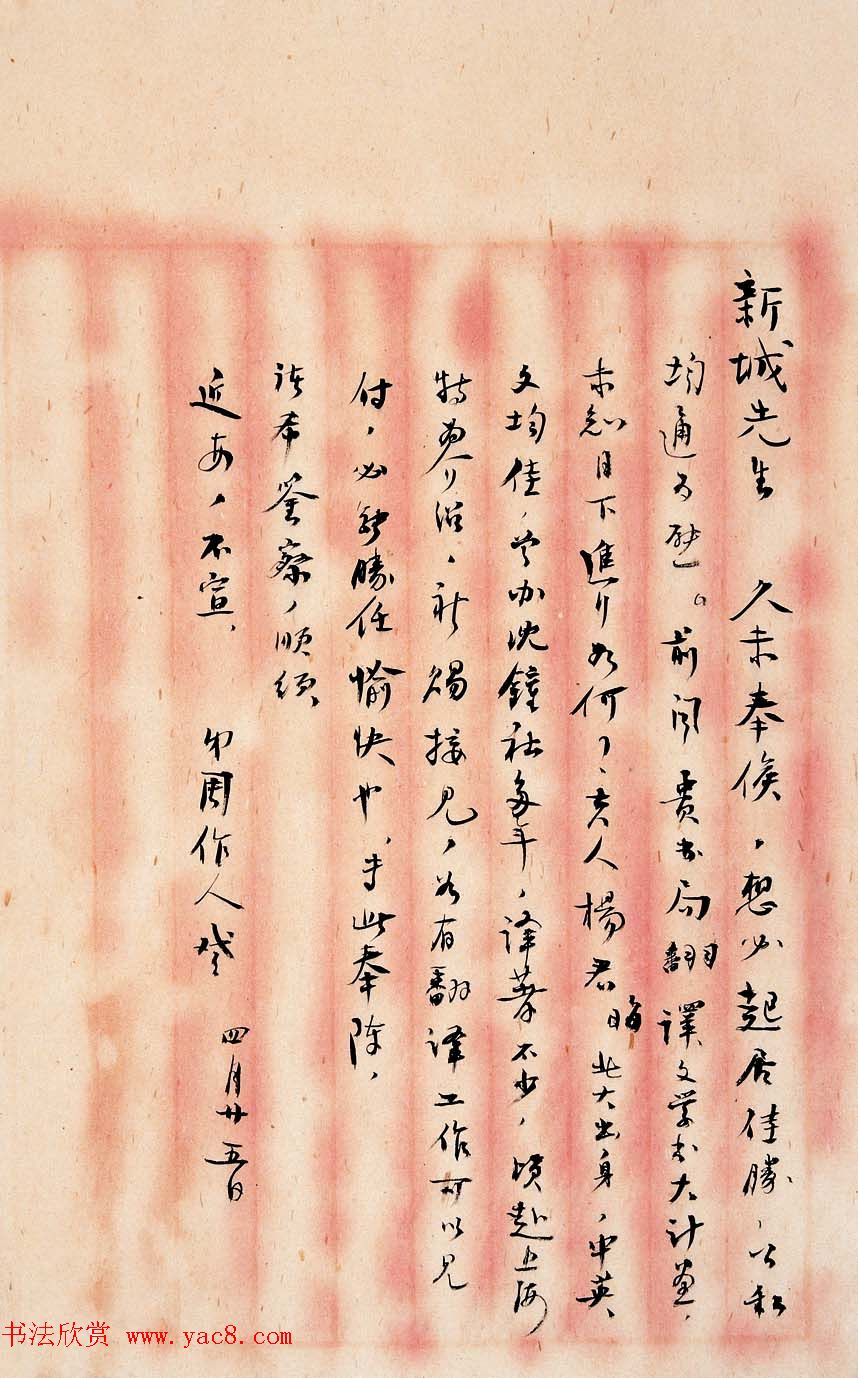 新城先生 久未奉候，想必起居佳勝，公私
均通为慰。前闻贵书局翻譯文学书大计画，
未知目下進行如何？友人楊君晦北大出身，中英
文均佳，曾办沈鐘社多年，譯著不少，顷赴上海
特为介绍，祈赐接见，如有翻译工作可以见
付，必能勝任愉快也，专此奉陈，
诸希鉴察，顺颂
近安，不宣，
弟周作人啓 四月廿五日
书法欣赏 www.yac8.com